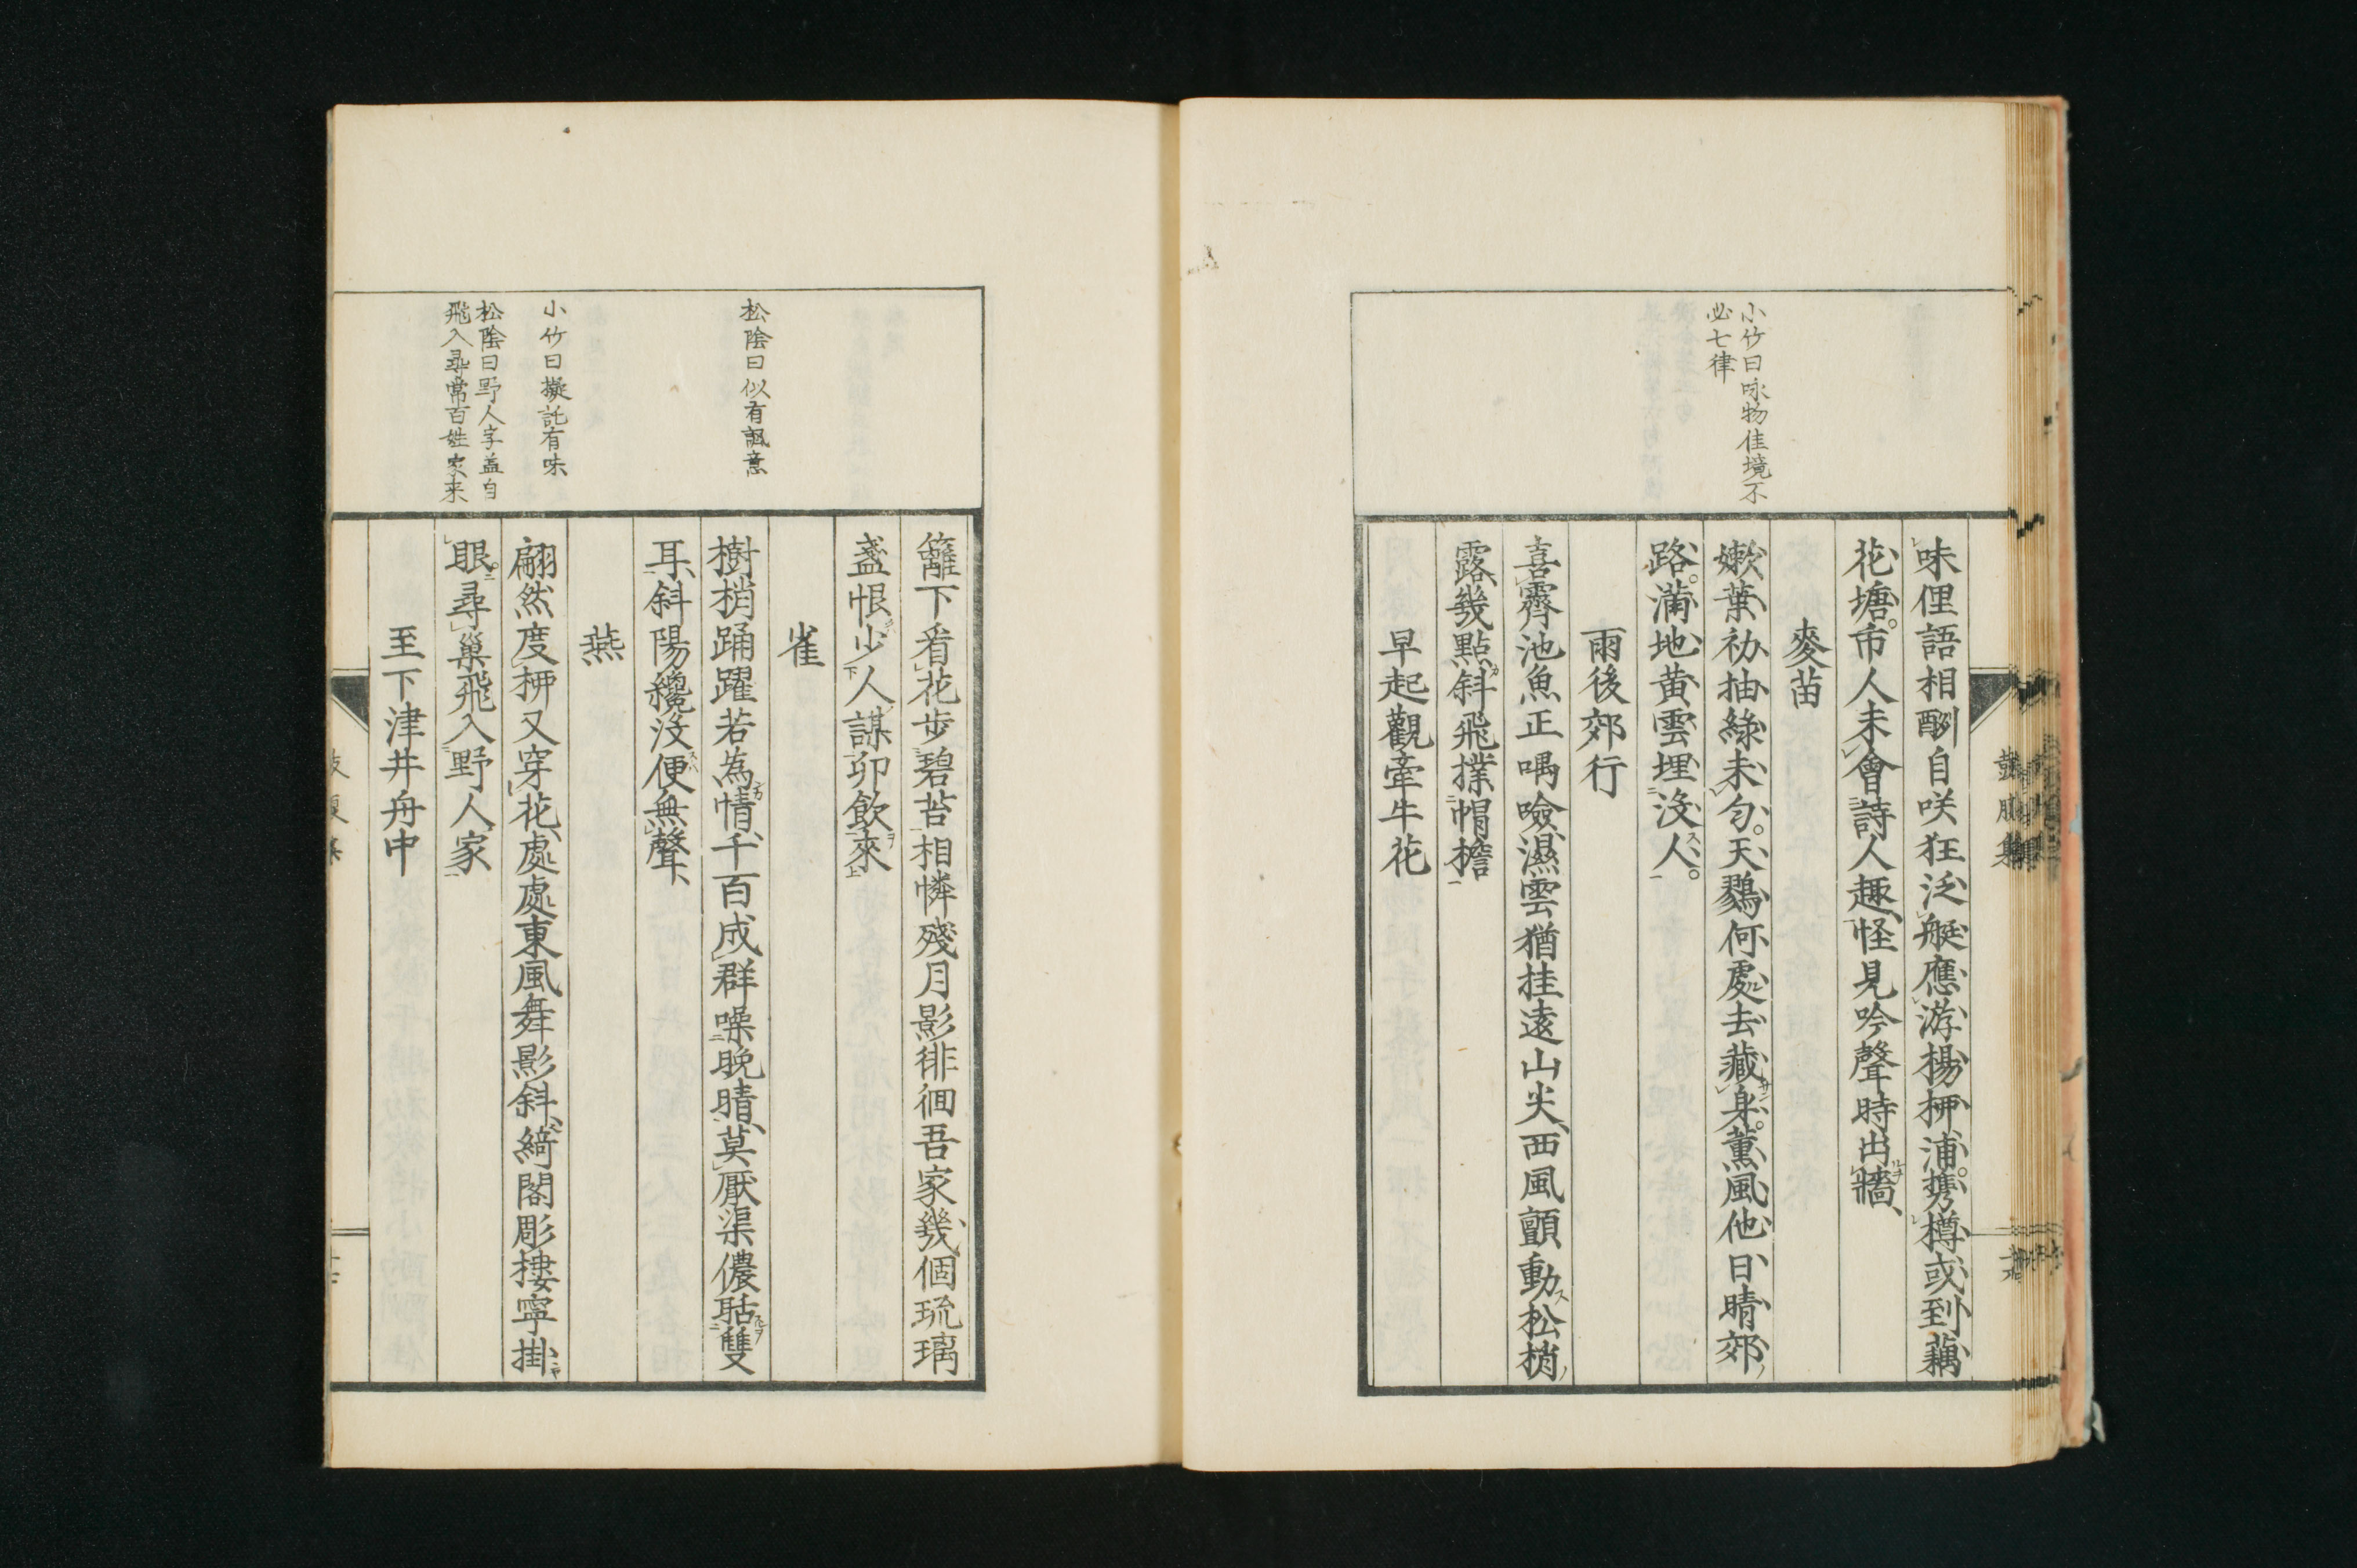 小竹曰咏物佳境不
必七律
味俚語相酬自咲狂泛艇應游楊柳浦携樽或到藕
花塘市人未會詩人趣怪見吟聲時出牆
麥苗
嫩葉初抽綠未勻天鷚何處去藏身薰風他日晴郊
路滿地黄雲埋没人
雨後郊行
喜霽池魚正喁噞濕雲猶挂遠山尖西風顫動松梢
露幾點斜飛撲帽檐
早起觀牽牛花
松陰曰似有諷意
小竹曰擬託有味
松陰曰野人字盖自
飛入尋常百姓家来
籬下看花步碧苔相憐殘月影徘徊吾家幾個琉璃
盞恨少人謀卯飲來
雀
樹梢踊躍若為情千百成群噪晩晴莫厭渠儂聒雙
耳斜陽纔没便無聲
燕
翩然度柳又穿花處處東風舞影斜綺閣彫樓寧掛
眼尋巢飛入野人家
至下津井舟中